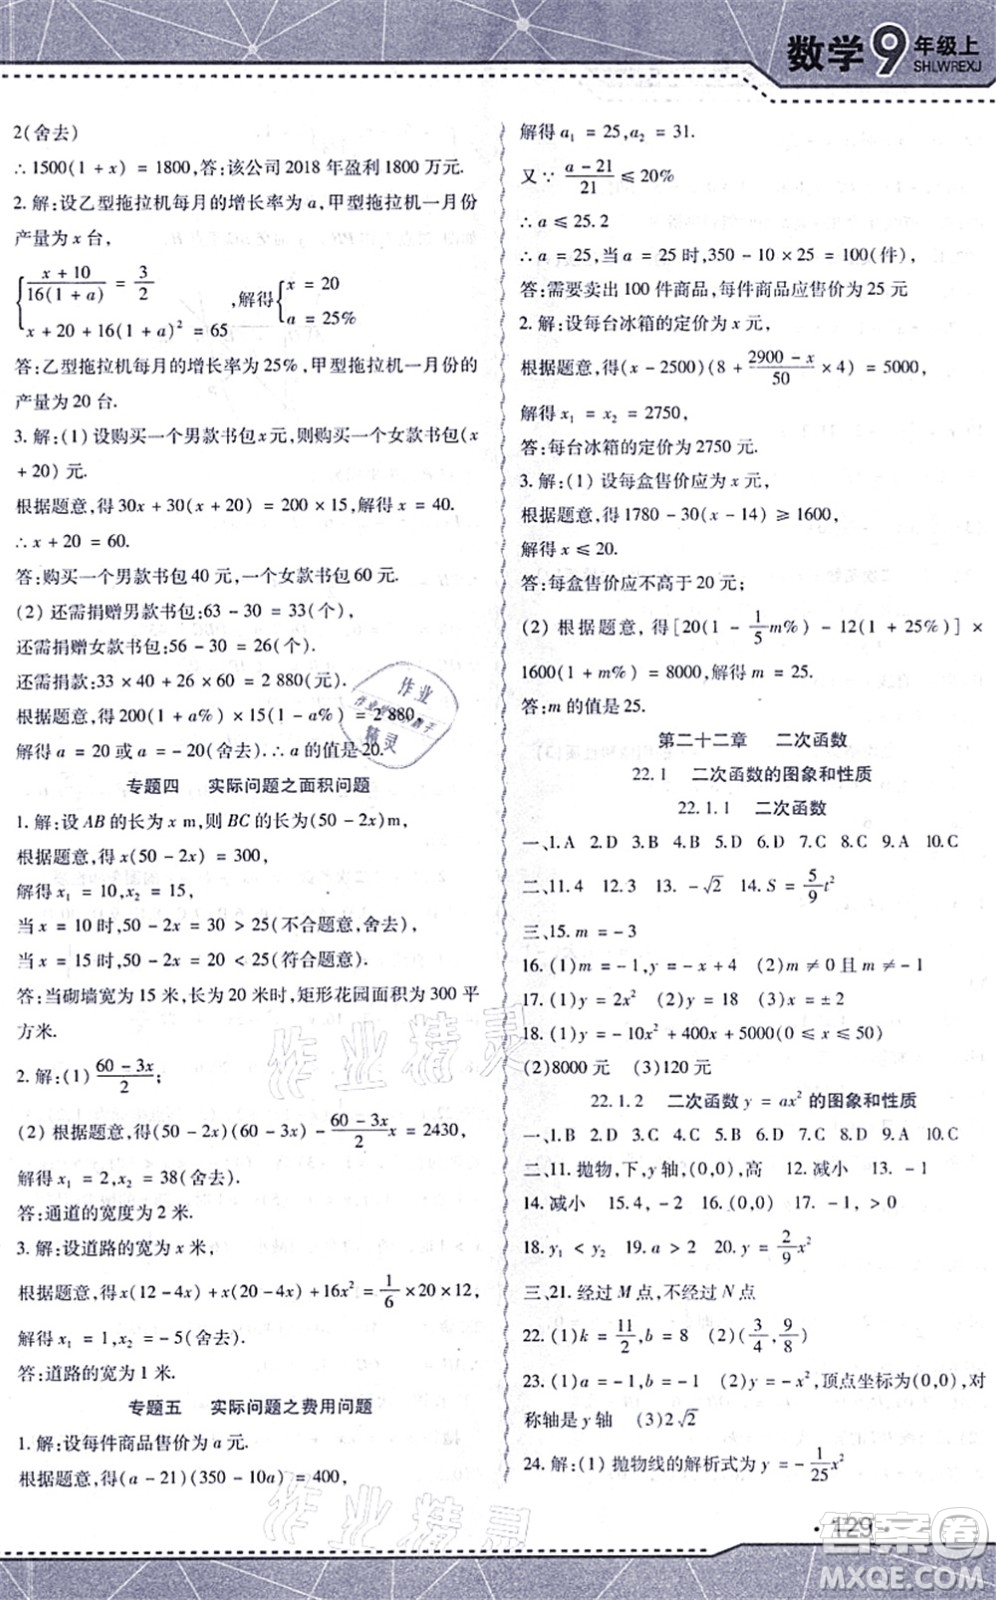 数学9年级上
SHLWREXJ
2(舍去)
∴1500(1+x)=1800,答:该公司2018年盈利1800万元.
2.解:设乙型拖拉机每月的增长率为a,甲型拖拉机一月份
产量为x台,
{(x+10)/(16(1+a))=3/2
x+20+16(1+a)²=65 ,解得{x=20
a=25%
答:乙型拖拉机每月的增长率为25%,甲型拖拉机一月份的
产量为20台.
3.解:(1)设购买一个男款书包x元,则购买一个女款书包(x
+20)元.
根据题意,得30x+30(x+20)=200×15,解得x=40.
∴x+20=60.
答:购买一个男款书包40元,一个女款书包60元.
(2)还需捐赠男款书包:63-30=33(个),
还需捐赠女款书包:56-30=26(个).
还需捐款:33×40+26×60=2 880(元).
根据题意,得200(1+a%)×15(1-a%)=2 880,
解得a=20或a=-20(舍去).∴a的值是20.
专题四 实际问题之面积问题
1.解:设AB的长为x m,则BC的长为(50-2x)m,
根据题意,得x(50-2x)=300,
解得x₁=10,x₂=15,
当x=10时,50-2x=30>25(不合题意,舍去),
当x=15时,50-2x=20<25(符合题意).
答:当砌墙宽为15米,长为20米时,矩形花园面积为300平
方米.
2.解:(1)(60-3x)/2;
(2)根据题意,得(50-2x)(60-3x)-(60-3x)/2 x=2430,
解得x₁=2,x₂=38(舍去).
答:通道的宽度为2米.
3.解:设道路的宽为x米,
根据题意,得x(12-4x)+x(20-4x)+16x²=1/6×20×12,
解得x₁=1,x₂=-5(舍去).
答:道路的宽为1米.
专题五 实际问题之费用问题
1.解:设每件商品售价为a元.
根据题意,得(a-21)(350-10a)=400,
解得a₁=25,a₂=31.
又∵(a-21)/21≤20%
∴a≤25.2
∴a=25,当a=25时,350-10×25=100(件),
答:需要卖出100件商品,每件商品应售价为25元
2.解:设每台冰箱的定价为x元,
根据题意,得(x-2500)(8+(2900-x)/50×4)=5000,
解得x₁=x₂=2750,
答:每台冰箱的定价为2750元.
3.解:(1)设每盒售价应为x元,
根据题意,得1780-30(x-14)≥1600,
解得x≤20.
答:每盒售价应不高于20元;
(2)根据题意,得[20(1-1/5m%)-12(1+25%)]×
1600(1+m%)=8000,解得m=25.
答:m的值是25.
第二十二章 二次函数
22.1 二次函数的图象和性质
22.1.1 二次函数
一、1.A 2.D 3.B 4.B 5.D 6.D 7.C 8.C 9.A 10.C
二、11.4 12.3 13.-√2 14.S=5/9t²
三、15.m=-3
16.(1)m=-1,y=-x+4 (2)m≠0且m≠-1
17.(1)y=2x² (2)y=18 (3)x=±2
18.(1)y=-10x²+400x+5000(0≤x≤50)
(2)8000元 (3)120元
22.1.2 二次函数y=ax²的图象和性质
一、1.B 2.D 3.C 4.B 5.C 6.A 7.D 8.D 9.B 10.C
二、11.抛物,下,y轴,(0,0),高 12.减小 13.-1
14.减小 15.4,-2 16.(0,0) 17.-1,>0
18.y₁<y₂ 19.a>2 20.y=2/9x²
三、21.经过M点,不经过N点
22.(1)k=11/2,b=8 (2)(3/4,9/8)
23.(1)a=-1,b=-1 (2)y=-x²,顶点坐标为(0,0),对
称轴是y轴 (3)2√2
24.解:(1)抛物线的解析式为y=-1/25x²
·129·
作业精灵
作业精灵
答案圈
MXQE.COM